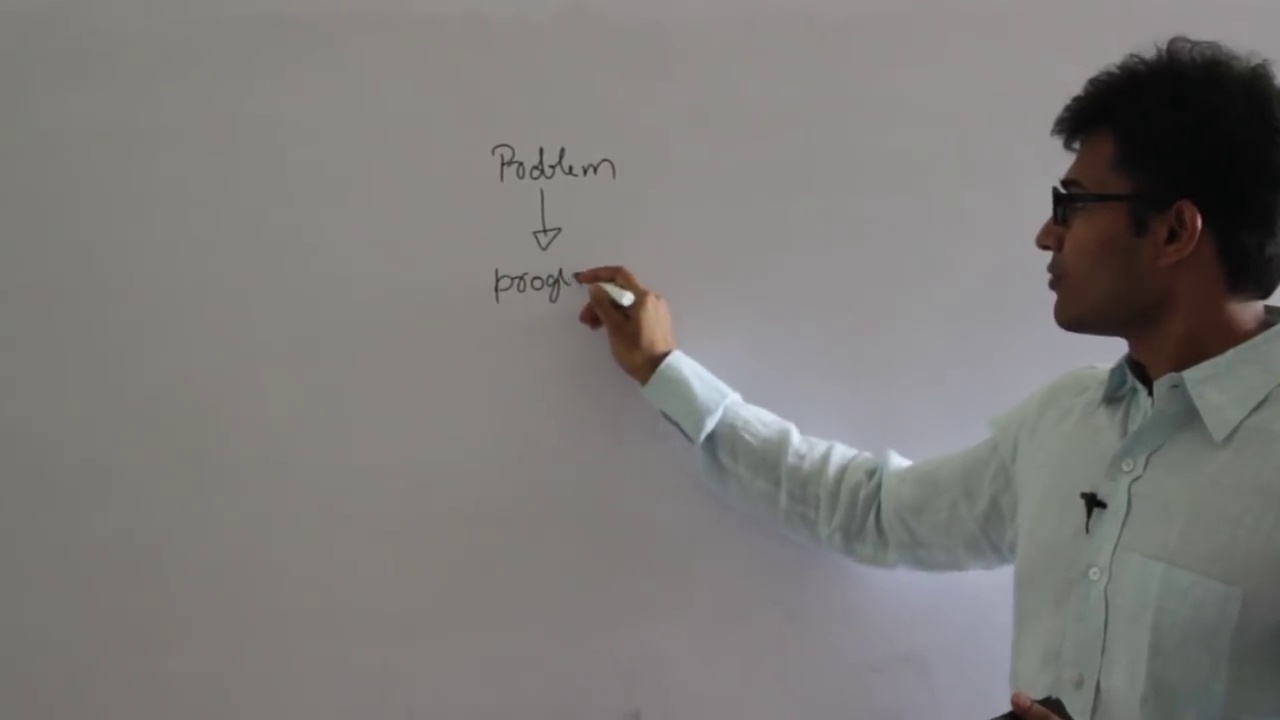 Problem
progr